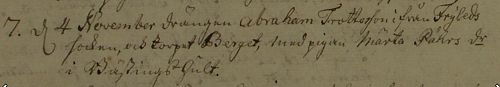 7. d 4 November drängen Abraham Trottesson ifrån Fryleds
socken, och torpet Berget, med pigan Märta Påhrs Dr
i Bästings Hult.